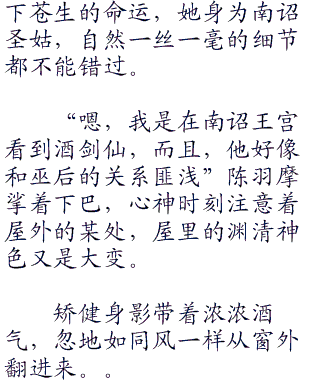 下苍生的命运，她身为南诏
圣姑，自然一丝一毫的细节
都不能错过。
“嗯，我是在南诏王宫
看到酒剑仙，而且，他好像
和巫后的关系匪浅”陈羽摩
挲着下巴，心神时刻注意着
屋外的某处，屋里的渊清神
色又是大变。
矫健身影带着浓浓酒
气，忽地如同风一样从窗外
翻进来。。